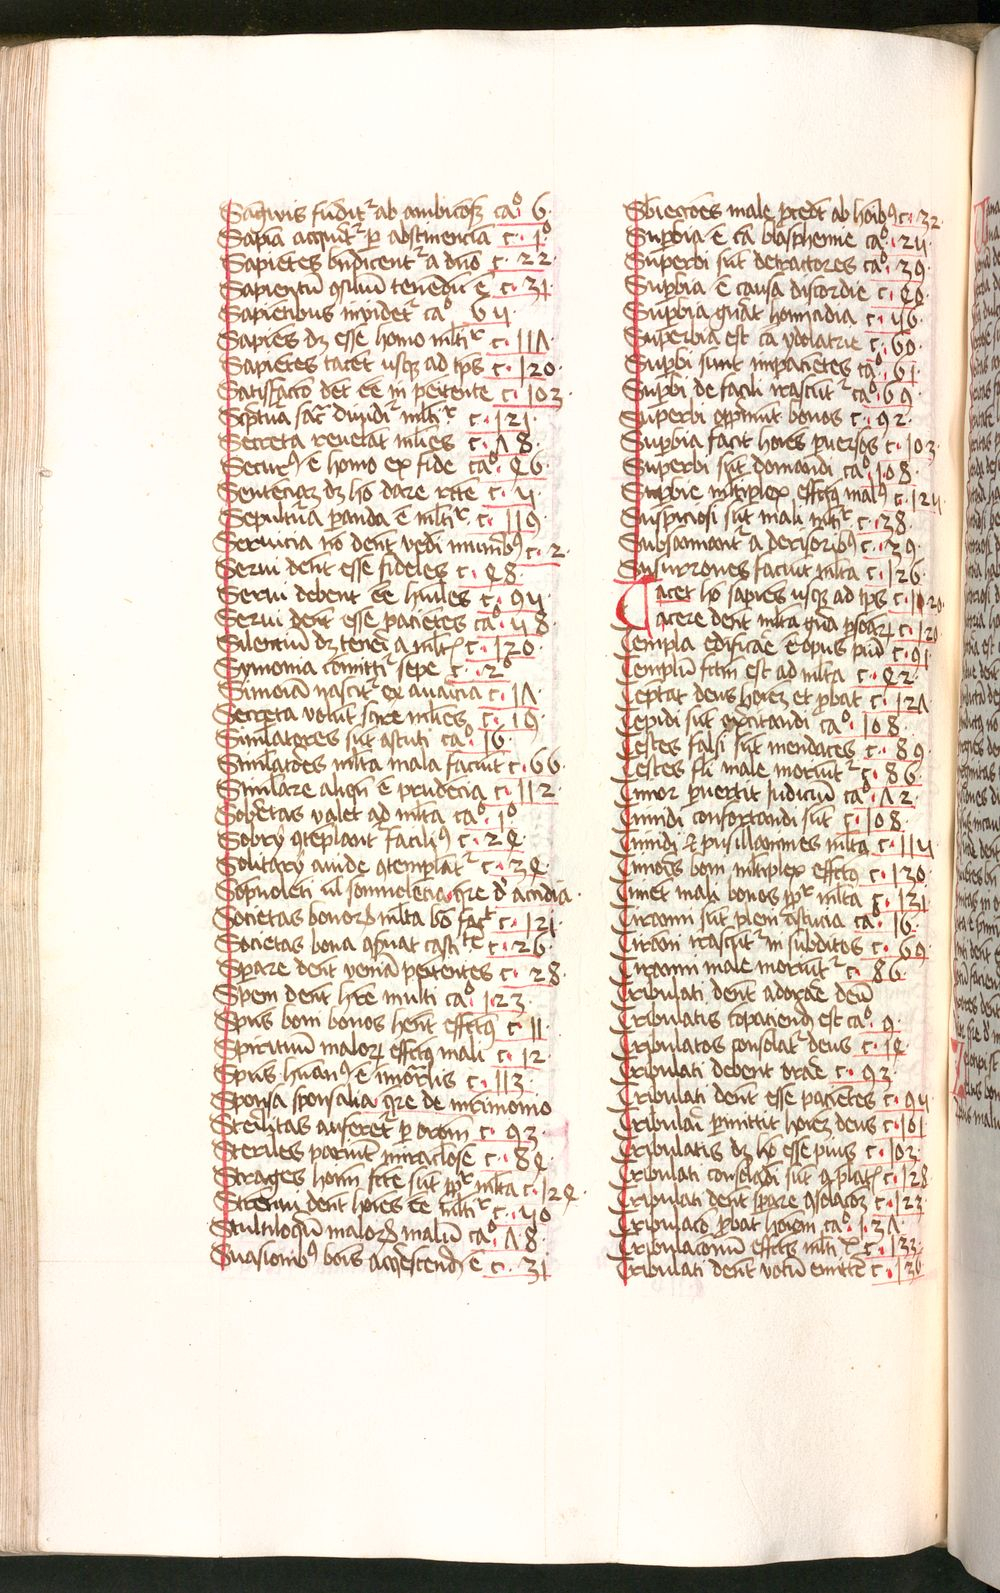 Sagwis fudit² ab ambicoꝫ ca° 6
Sapīa acquit² ꝑ abstinencia c · 1°
Sapiētes bn̄dicent² a dn̄o c · 22
Sapientū ꝯsiliū tenēdū ē c · 31
Sapientibus inuidet² ca° 64
Sapiēs dꝫ esse homo mltīr c · 117
Sapiētes tacēt usqꝫ ad tp̄s c · 120
Satisfactio dēt eē in penitente c · 103
Scptura sac̄ diuidi² mltīr c · 121
Secreta reuelāt mlīes c · 78
Securꝰ ē homo ex fide ca° 46
Sentenciaꝫ dꝫ hō dare rcte c · 4
Sepultura paranda ē mltīr c · 119
Seruicia nō dēnt vēdi munibꝰ c · 2
Serui dēnt esse fideles c · 48
Serui debent eē hūiles c · 94
Serui dēnt esse paciētes ca° 48
Silentiū dꝫ teneri a mltis c · 120
Symonia comittit² sepe c · 2°
Simoīa nascit² ex auaricia c · 17
Secreta volūt scire mlīes c · 19
Simlatores sūt astuti ca° 16
Simlatōes mlta mala faciūt c · 66
Similare aliqn̄ ē prudēcia c · 112
Sobrietas valet ad mlta ca° 1°
Sobrij ꝯteplant² faciliꝰ c · 24
Solitarij auide ꝯtemplāt² c · 34
Sopnolēti ul somnolēcia qre d' accidia
Societas bonorꝫ mlta bō facit c · 121
Societas bona ꝯseruat castite c · 26
Sperare dēnt veniā penitentes c · 28
Spem dēnt hr̄e multi ca° 123
Spūs boni bonos hēnt effectꝰ c · 11
Spirituū maloꝝ effectꝰ mali c · 12
Spūs hūanꝰ ē imortalis c · 113
Sponsa sponsalia qre de mrimonio
Sterilitas aufert² ꝑ orōem c · 93
Steriles pariūt miraclose c · 84
Strages hoīm fcte sūt ppr̄ mlta c · 124
Strenui dēnt hoīes eē mltīr c · 40
Stultiloquiū malorꝫ malū ca° 78
Suasionibꝰ bonis acqescendū ē c · 31
Sbiectōes male ꝓcedt ab hoībꝰ c · 32
Supbia ē cā blasphemie ca° 24
Superbi sūt detractores ca° 39
Supbia ē causa discordie c · 40
Supbia gn̄at homicidia c · 46
Superbia est cā ydolatrie c · 60
Supbi sunt impaciētes ca° 61
Supbi de facili irascūt² ca° 69
Superbi opprimūt bonos c · 92
Supbia facit hoīes puersos c · 103
Superbi sūt domandi ca° 108
Supbie mltiplex effectꝰ malꝰ c · 124
Suspiciosi sūt mali mltīr c · 38
Subsannant² a derisoribꝰ c · 39
Susurrones faciūt mlta c · 126
Tacet hō sapiēs usqꝫ ad tp̄s c · 120
Tacere dēnt mlta gn̄a psoaꝝ c · 120
Templa edificare ē opus piū c · 91
Templū fctm est ad mlta c · 42
Teptat deus hoīes et ꝓbat c · 127
Tepidi sūt excitandi ca° 108
Testes falsi sūt mendaces c · 89
Testes fli male moriūt² c · 86
Timor puertit iudiciū ca° 72
Timidi confortandi sūt c · 108
Timidi ⁊ pusillanimes mlta c · 114
Timoris boni mltiplex effectꝰ c · 130
Timēt mali bonos ppr̄ mlta c · 131
Tiranni sūt pleni astucia ca° 16
Tirāni irascūt² in subditos c · 69
Tiranni male moriūt² c · 86
Tribulati dēnt adorare deū
Tribulatis copatiendū est ca° 9
Tribulatos consolat² deus c · 14
Tribulati debent orare c · 93
Tribulati dēnt esse paciētes c · 94
Tribulari pmittit hoīes deus c · 101
Tribulatis dꝫ hō esse pius c · 103
Tribulati consoladi sūt ꝯplatis c · 128
Tribulati dēnt sperare ꝯsolacoꝫ c · 123
Tribulacō ꝓbat hoīem ca° 137
Tribulacionū effectꝰ mlti c · 133
Tribulati dēnt votū emittere c · 136